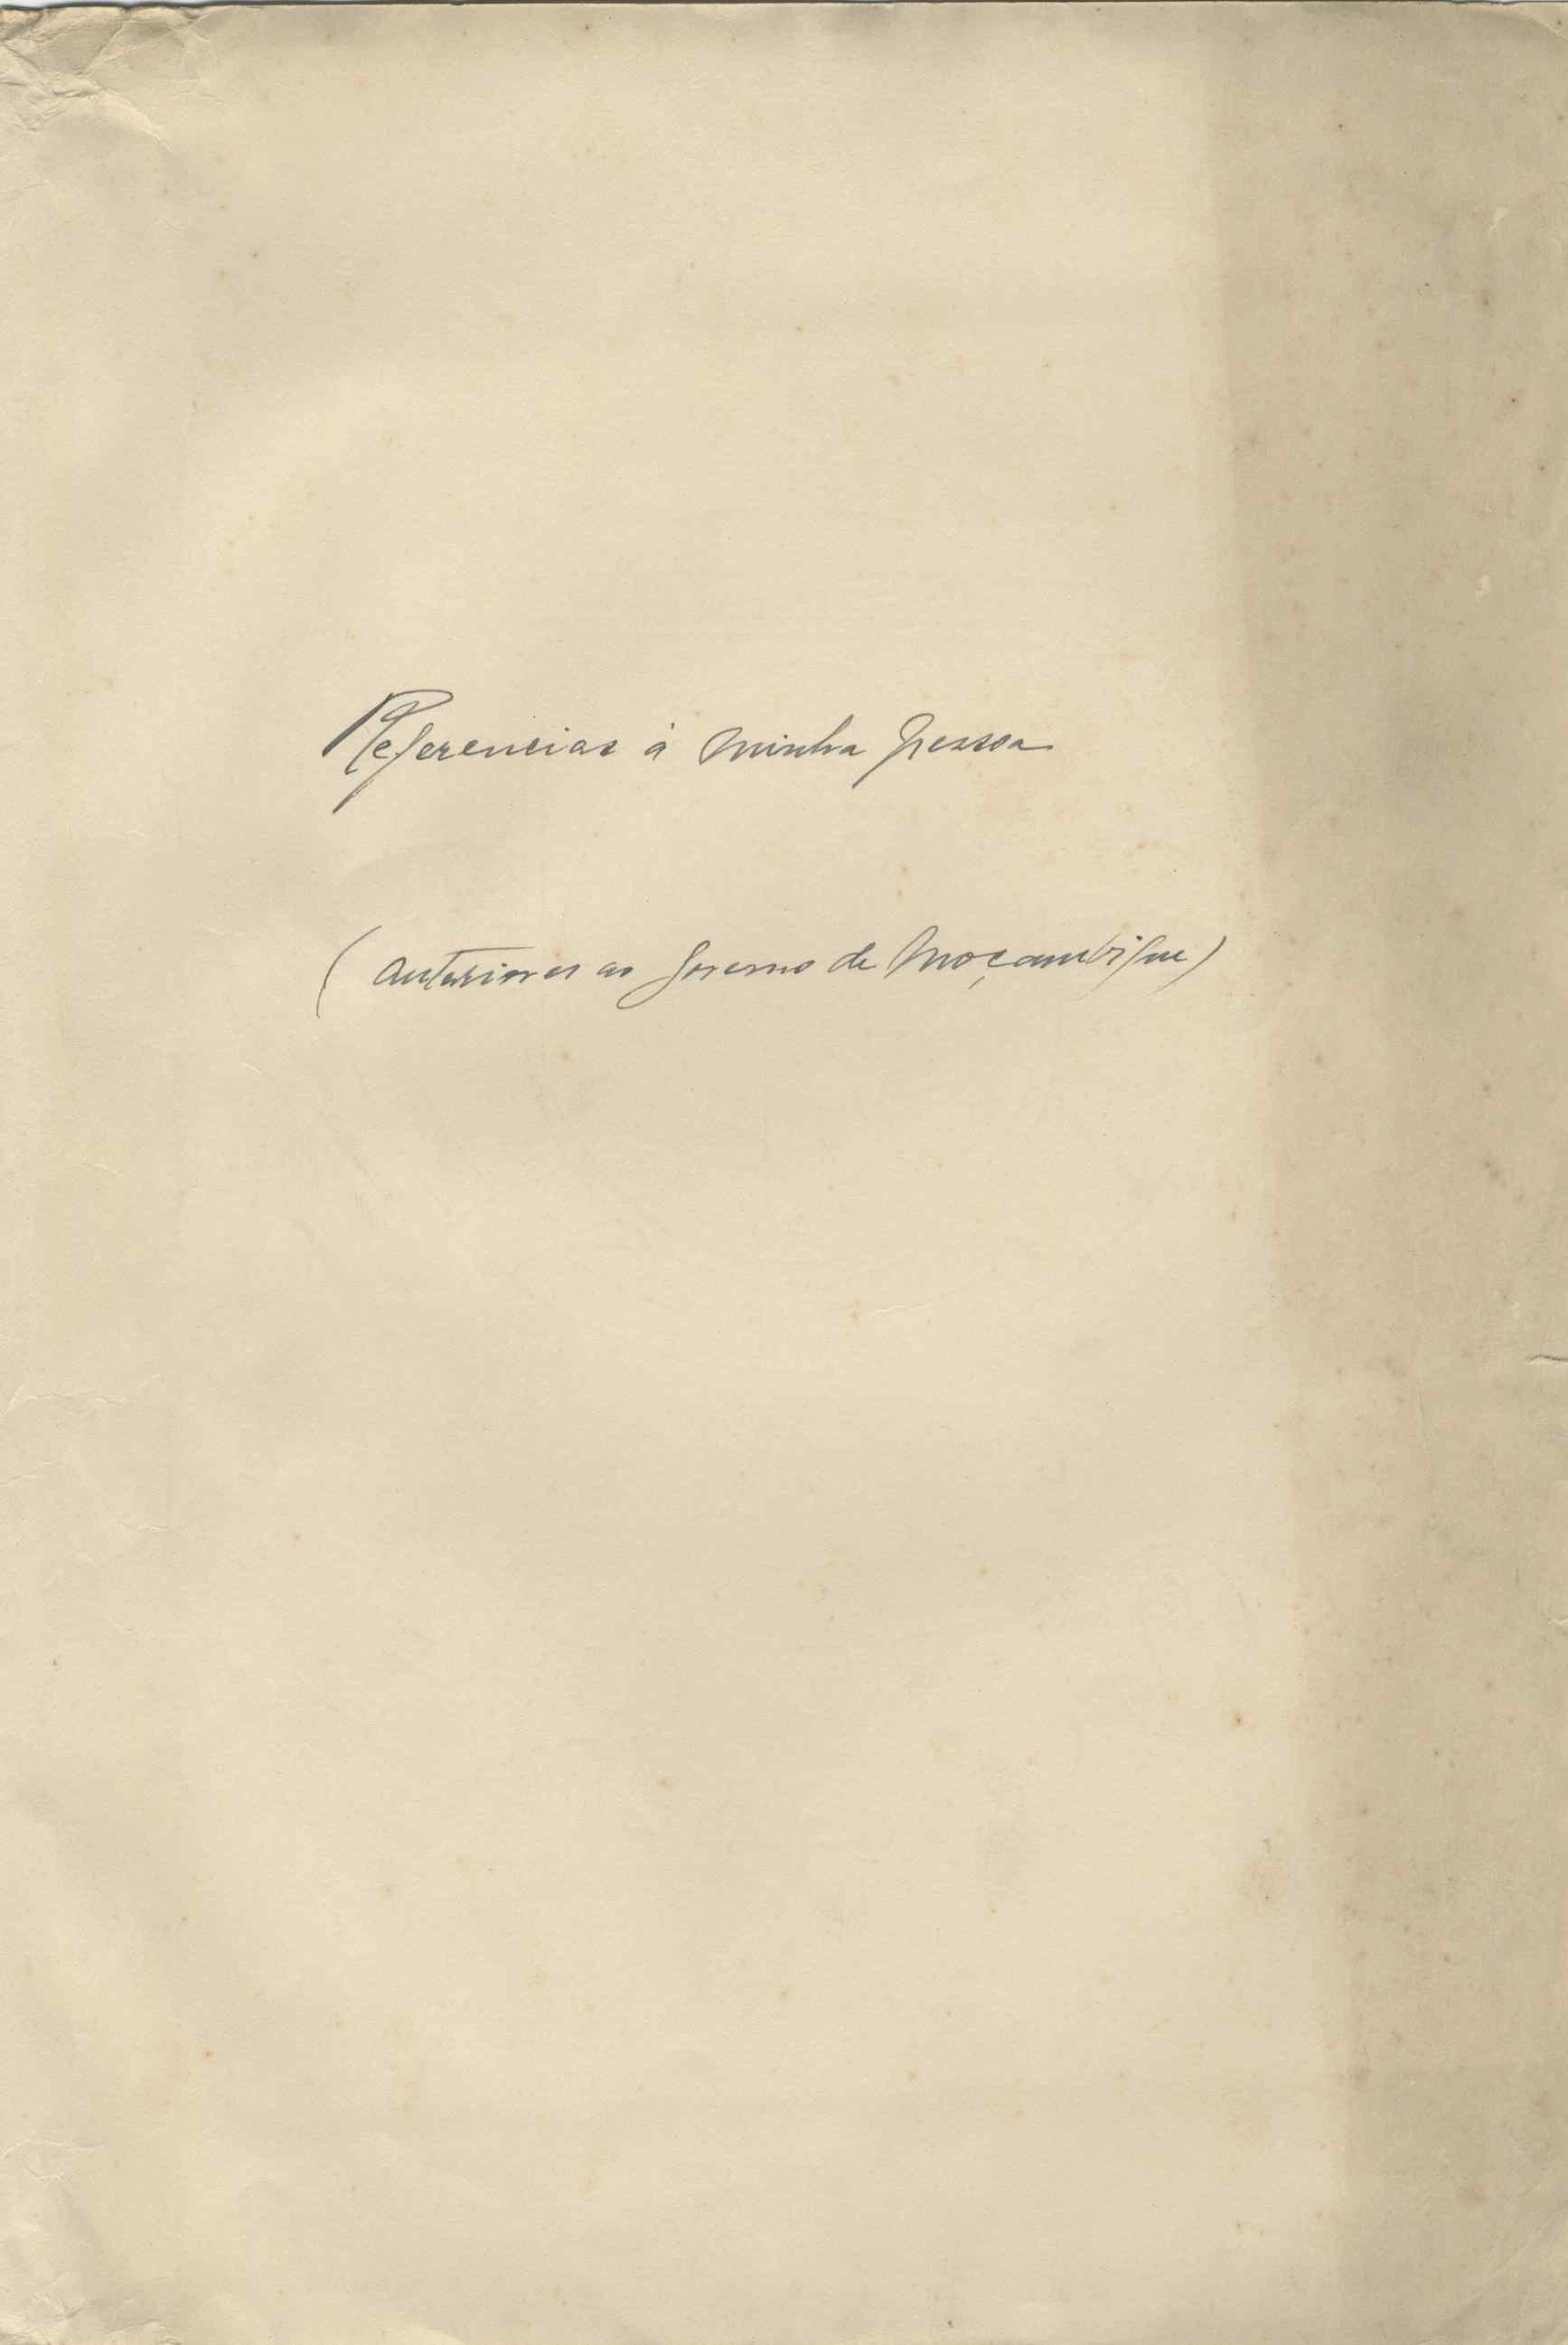 Referencias à minha pessoa
(anteriores ao governo de Moçambique)